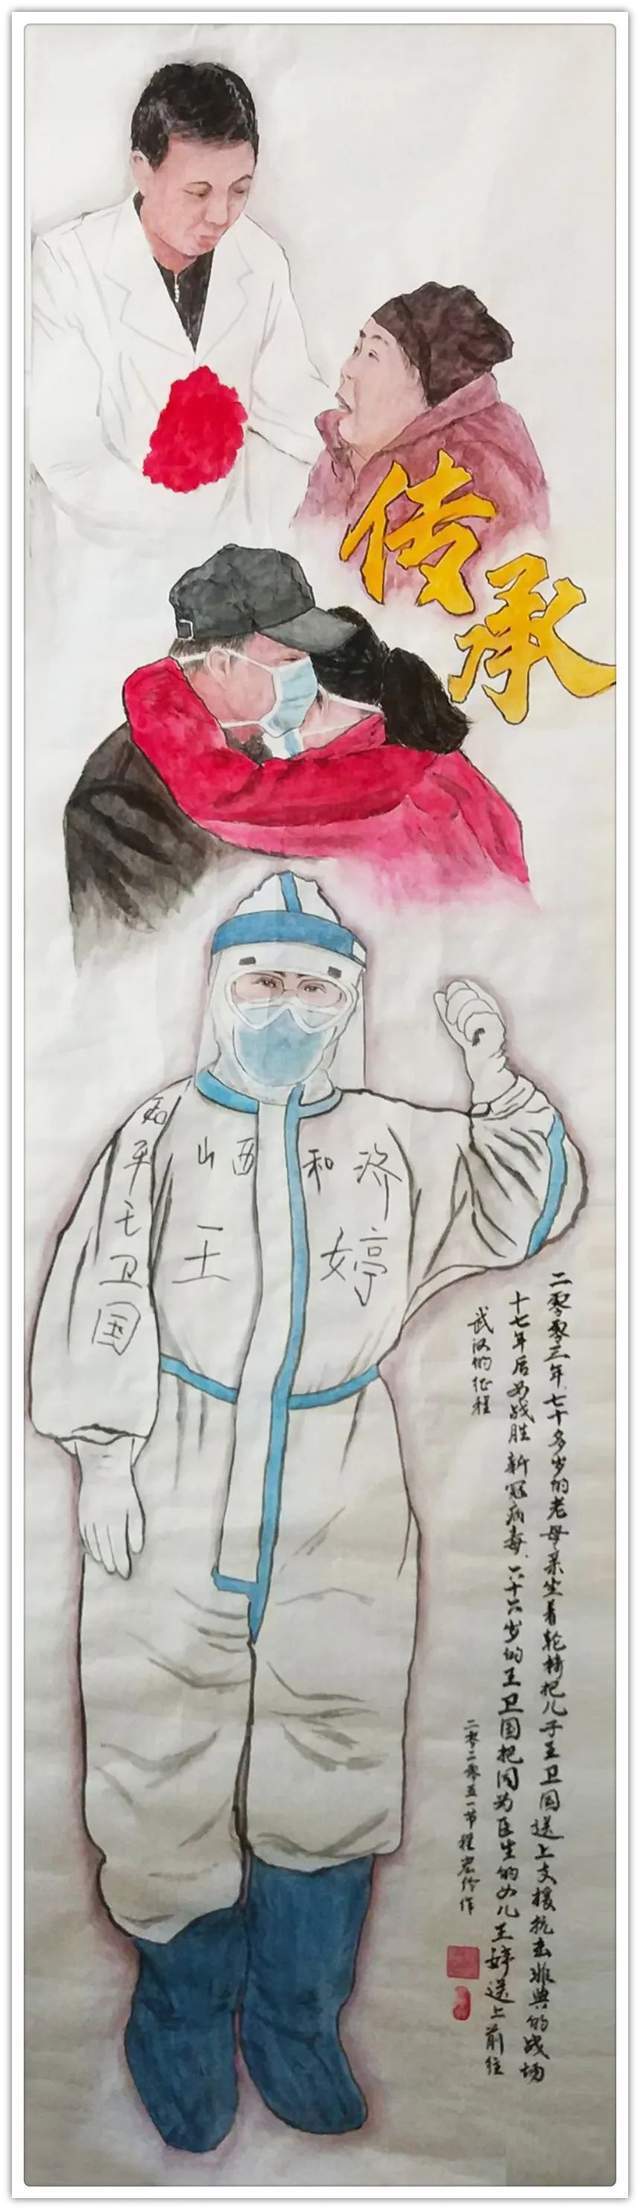 传承
和平王卫国
山西和济
王婷
二零零三年,七十多岁的老母亲坐着轮椅把儿子王卫国送上支援抗击非典的战场
十七年后为战胜新冠病毒,六十六岁的王卫国把同为医生的女儿王婷送上前往
武汉的征程
二零二零五一节程宏作